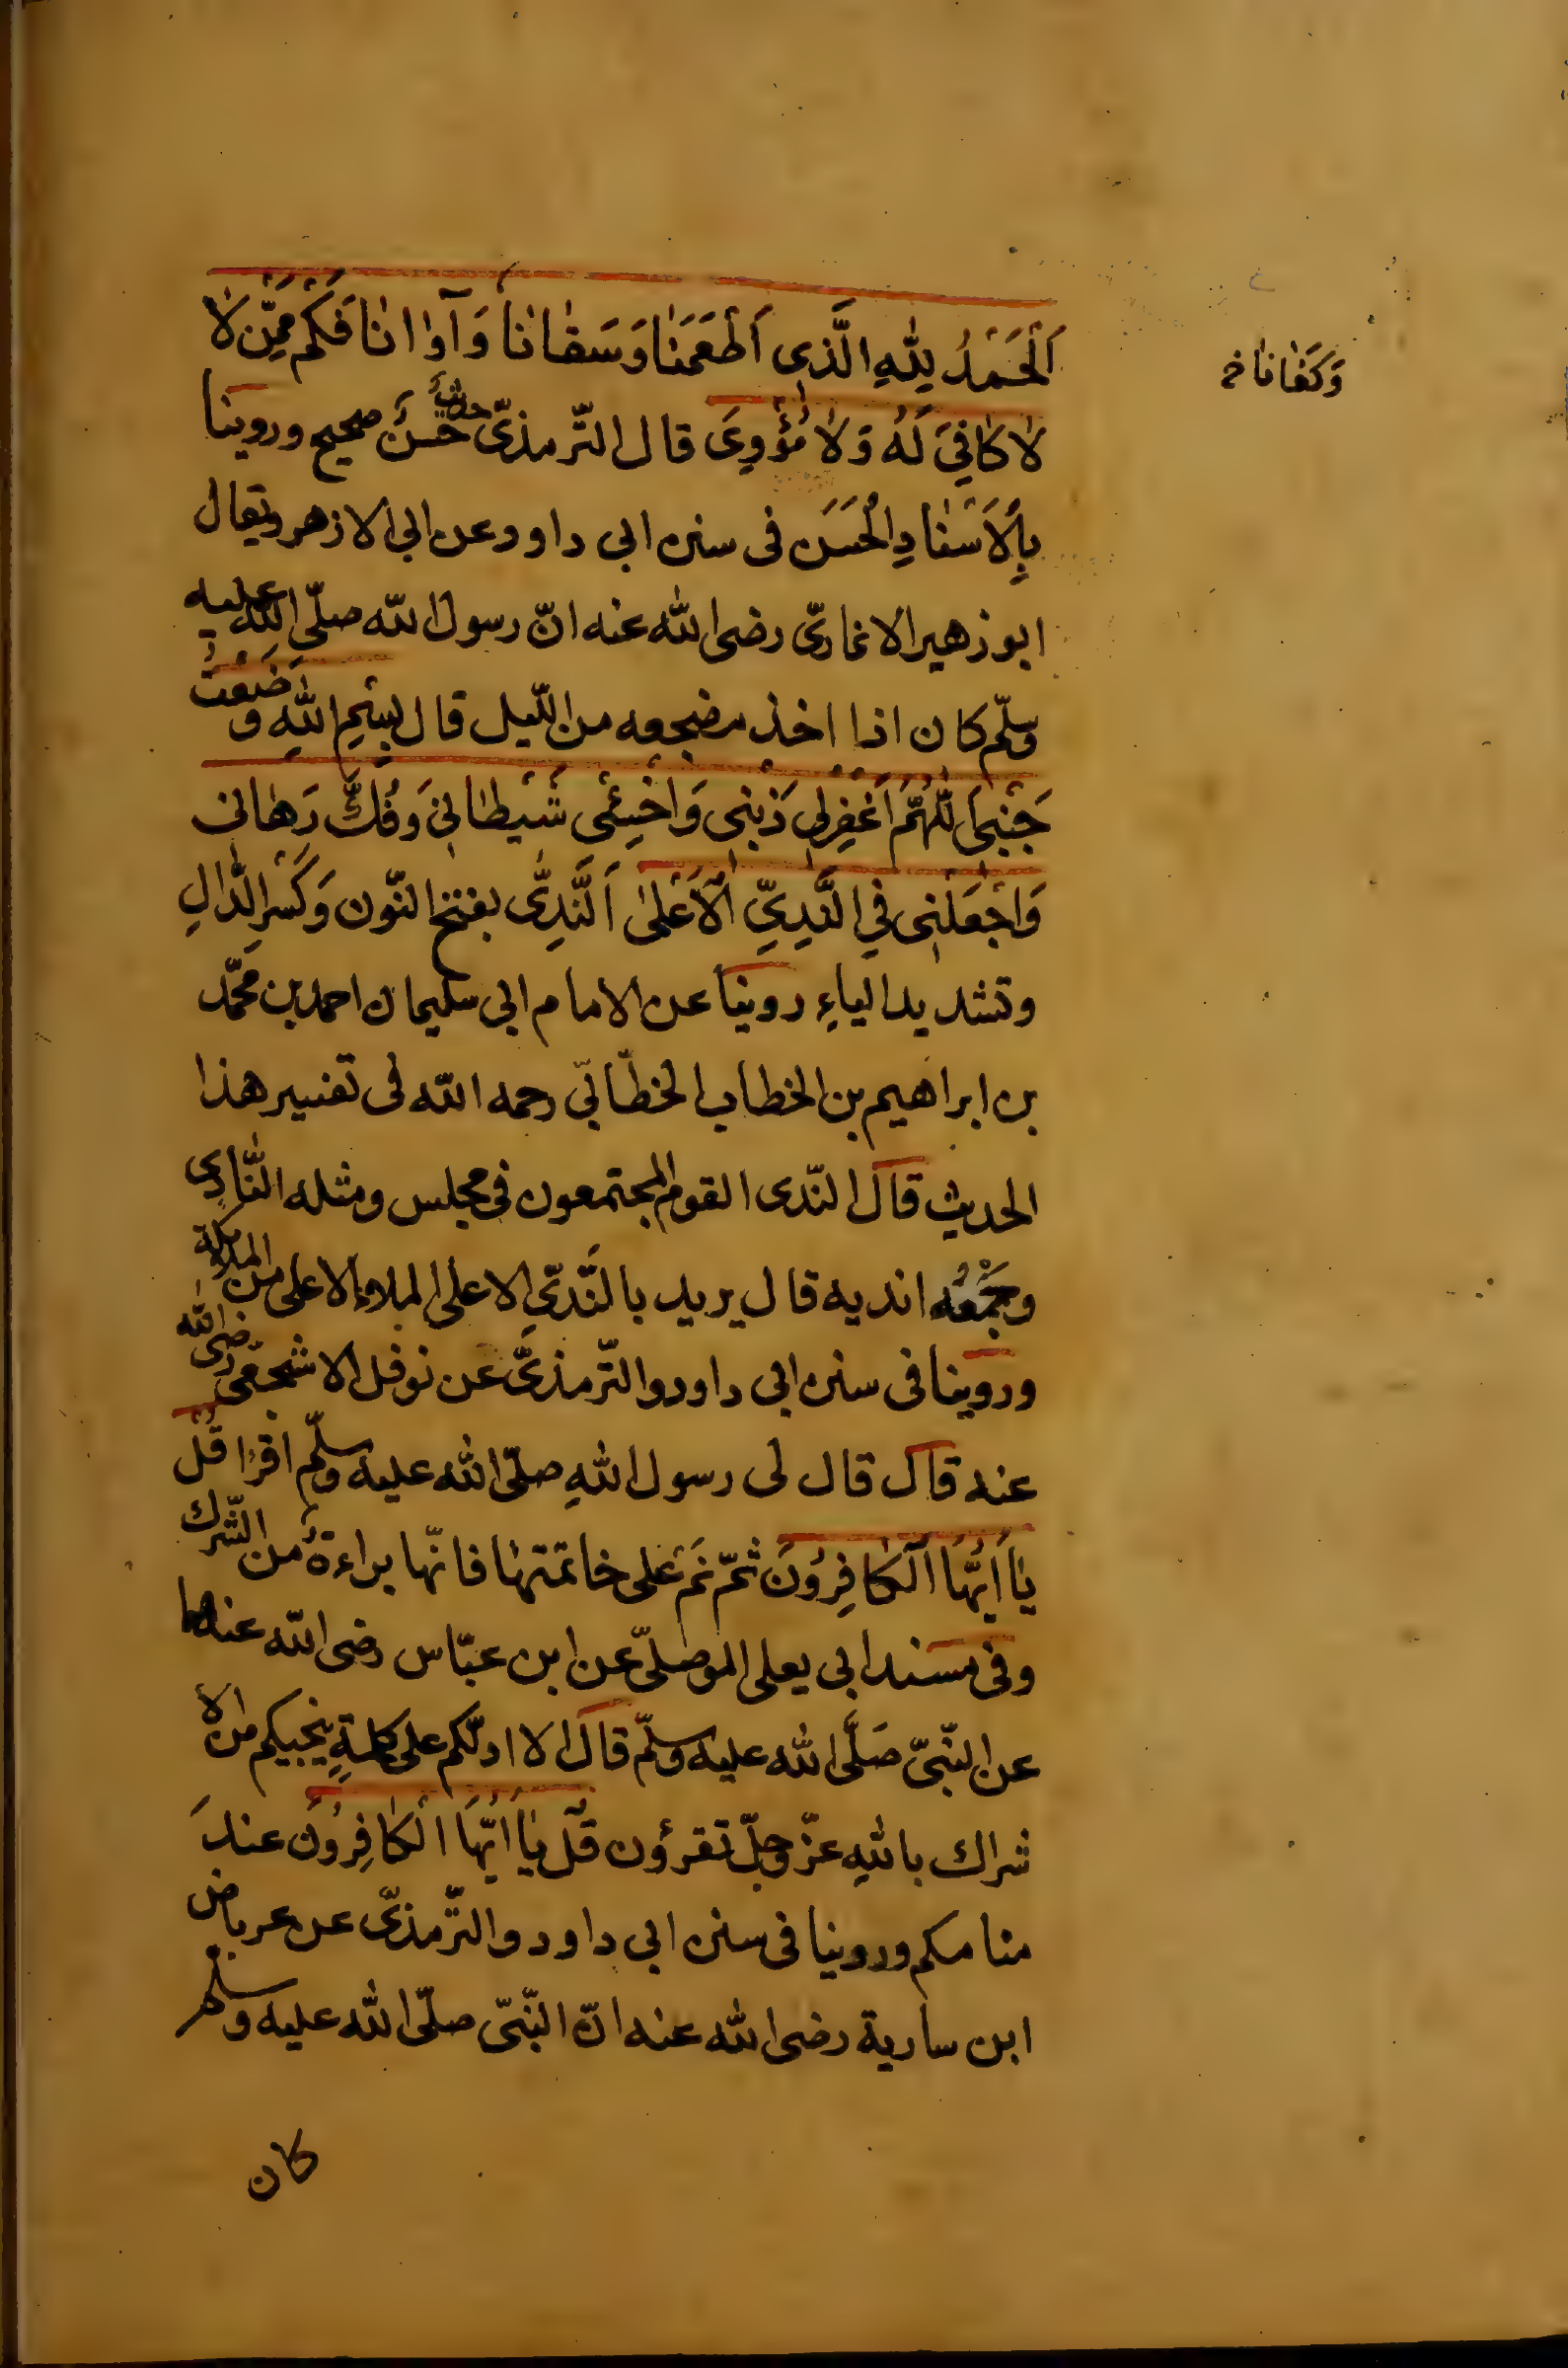 اَلْحَمْدُ لِلّٰهِ الَّذِی اَطْعَمَنٰا وَسَقٰانٰا وَآوٰانٰا فَكَمْ مِمَّنْ لاٰ
وَكَفٰانٰا خ
لاٰ كٰافِیَ لَهُ وَلاٰ مُؤْوِیَ قال التّرمذیّ حدیثٌ حَسَنٌ صحیح وروینا
بِالْاَسْنٰادِ الْحَسَنِ فی سنن ابی داود عن ابی الازهر ویقال
ابو زهیر الانماریّ رضی الله عنه انّ رسول الله صلّی الله علیه
وسلّم كان اذا اخذ مضجعه من اللّیل قال بِسْمِ اللهِ وَضَعْتُ
جَنْبِی اَللّٰهُمَّ اَغْفِرْلِی ذَنْبِی وَاخْسِئْی شَیْطٰانِیَ وَفُكَّ رَهٰانِی
وَاجْعَلْنِی فِی النَّدِیِّ الْاَعْلیٰ اَلنَّدِیُّ بفتح النّون وَكَسْرِ الدّالِ
وتشدید الیاءِ روینا عن الامام ابی سلیمان احمد بن محمّد
بن ابراهیم بن الخطاب الخطّابیّ رحمه الله فی تفسیر هذا
الحدیث قال النّدی القوم المجتمعون فی مجلس ومثله النّٰادِی
وجَمْعُه اندیه قال یرید بالنَّدِیّ الاعلی الملاء الاعلی من الملائكة
وروینا فی سنن ابی داود والتّرمذیّ عن نوفل الاشجعیّ رضی الله
عنه قال قال لی رسول اللهِ صلّی الله علیه وسلّم اقرٔا قُلْ
یٰا اَیُّهَا الْكٰافِرُوْنَ ثمّ نَمْ علی خاتمتهٰا فانّها براءةٌ من الشّرك
وفی مسند ابی یعلی الموصلیّ عن ابن عبّاس رضی الله عنهما
عن النّبیّ صَلَّی الله علیه وسلّم قال الا ادلّكم علی كلمةٍ ینجیكم من الا
شراك باللهِ عزّ وجلّ تقرؤن قُلْ یٰا اَیُّهَا الْكٰافِرُونَ عندَ
منامكم وروینا فی سنن ابی داود والتّرمذیّ عن عرباض
ابن ساریة رضی الله عنه انّ النّبیّ صلّی الله علیه وسلّم
كان